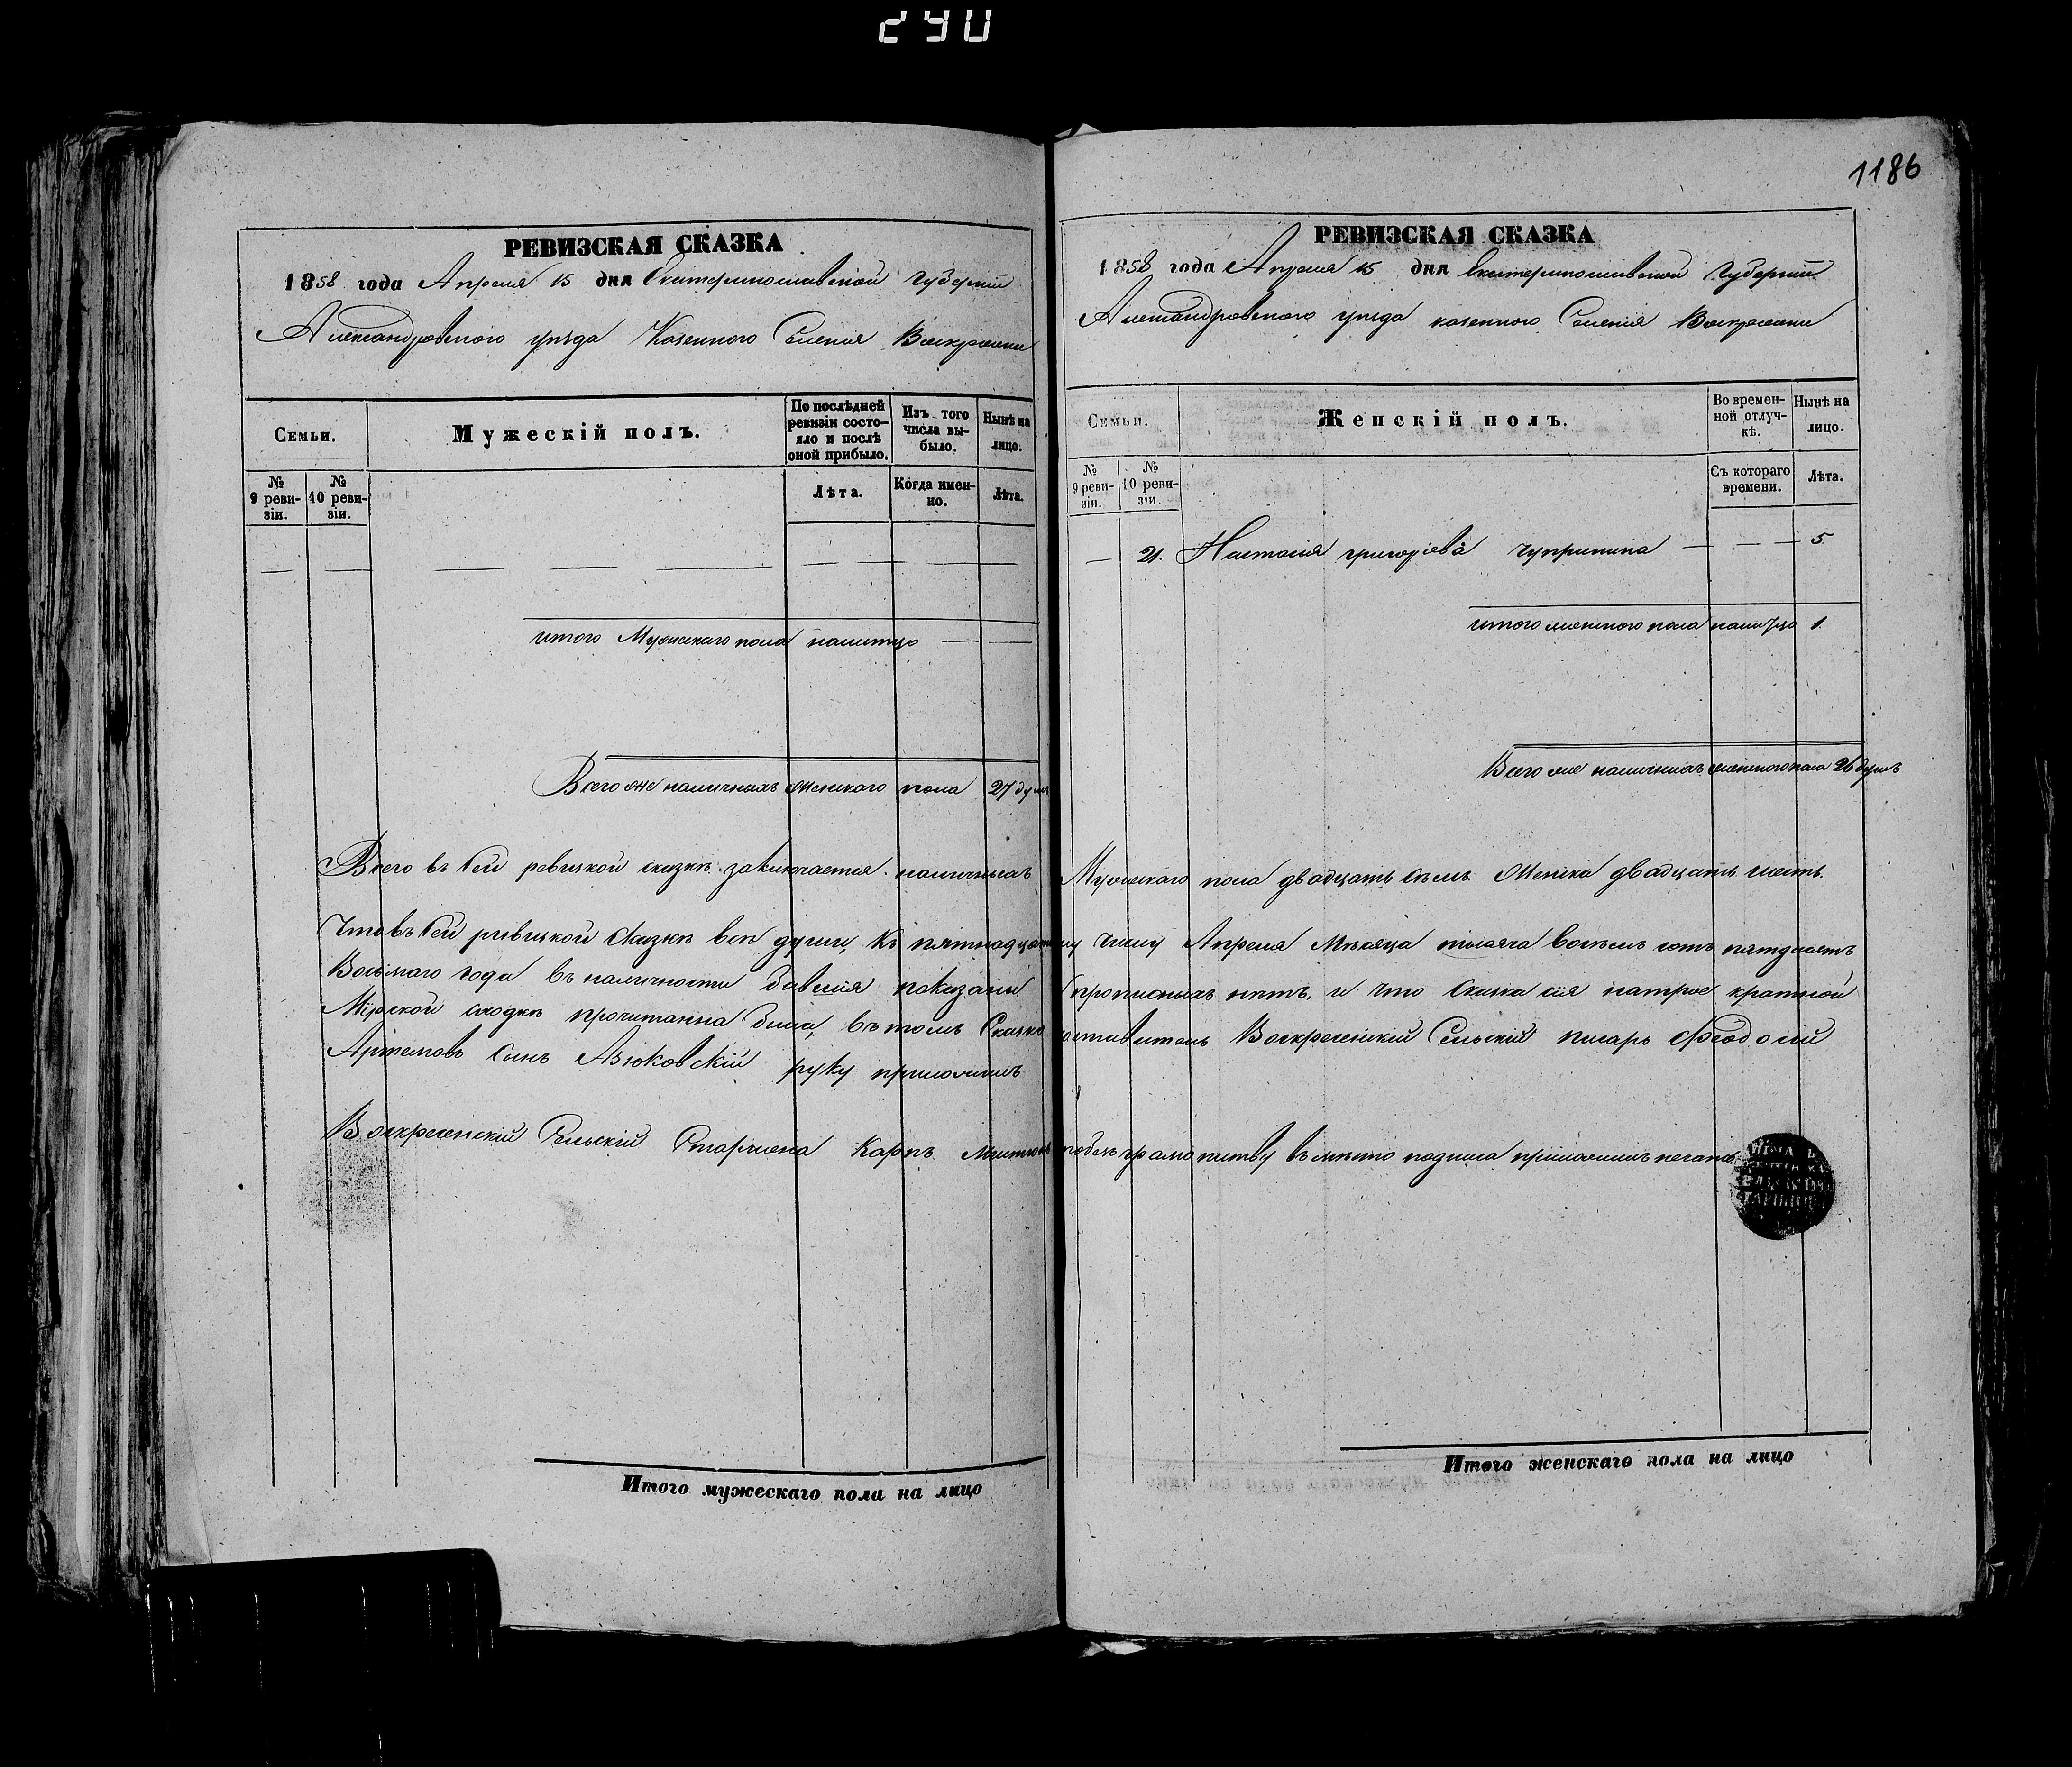 290
1186
РЕВИЗСКАЯ СКАЗКА
1858 года Апреля 15 дня Екатеринославской губерніи
Александровского уезда Казенного Селенія Воскресенки
Семьи.
Мужескій полъ.
По послѣдней ревизіи состояло и послѣ оной прибыло.
Изъ того числа выбыло.
Нынѣ на лицо.
№ 9 ревизіи.
№ 10 ревизіи.
Лѣта.
Когда именно.
Лѣта.
итого Мужескаго пола налицо
Всего же наличныхъ 27 душ
РЕВИЗСКАЯ СКАЗКА
1858 года Апреля 15 дня Екатеринославской губерніи
Александровского уезда казенного Селенія Воскресенки
Семьи.
Женскій полъ.
Во временной отлучкѣ.
Нынѣ на лицо.
№ 9 ревизіи.
№ 10 ревизіи.
Съ котораго времени.
Лѣта.
21. Настасія григоріева чупринина 5
итого женского пола налицо 1.
Всего же наличныхъ женского пола 26 душъ
Всего въ сей ревизкой сказкѣ заключается наличныхъ Мужескаго пола двадцать семь Женска двадцать шесть.
Что въ сей ревизкой Сказкѣ все души, къ пятнадцатому числу Апреля Мѣсяца тысяча восемь сотъ пятдесятъ
Восьмаго года въ наличности бывшія показаны прописныхъ нетъ, и что Сказка сія на
Мірской сходкѣ прочитанна была, въ томъ Сказко составитель Воскресенскій Сельскій писарь Феодосій
Артемовъ сынъ Азюковскій руку приложилъ
Воскресенскій Сельскій Старшена Карпъ грамо вместо подписа приложилъ печать
Итого мужескаго пола на лицо
Итого женскаго пола на лицо